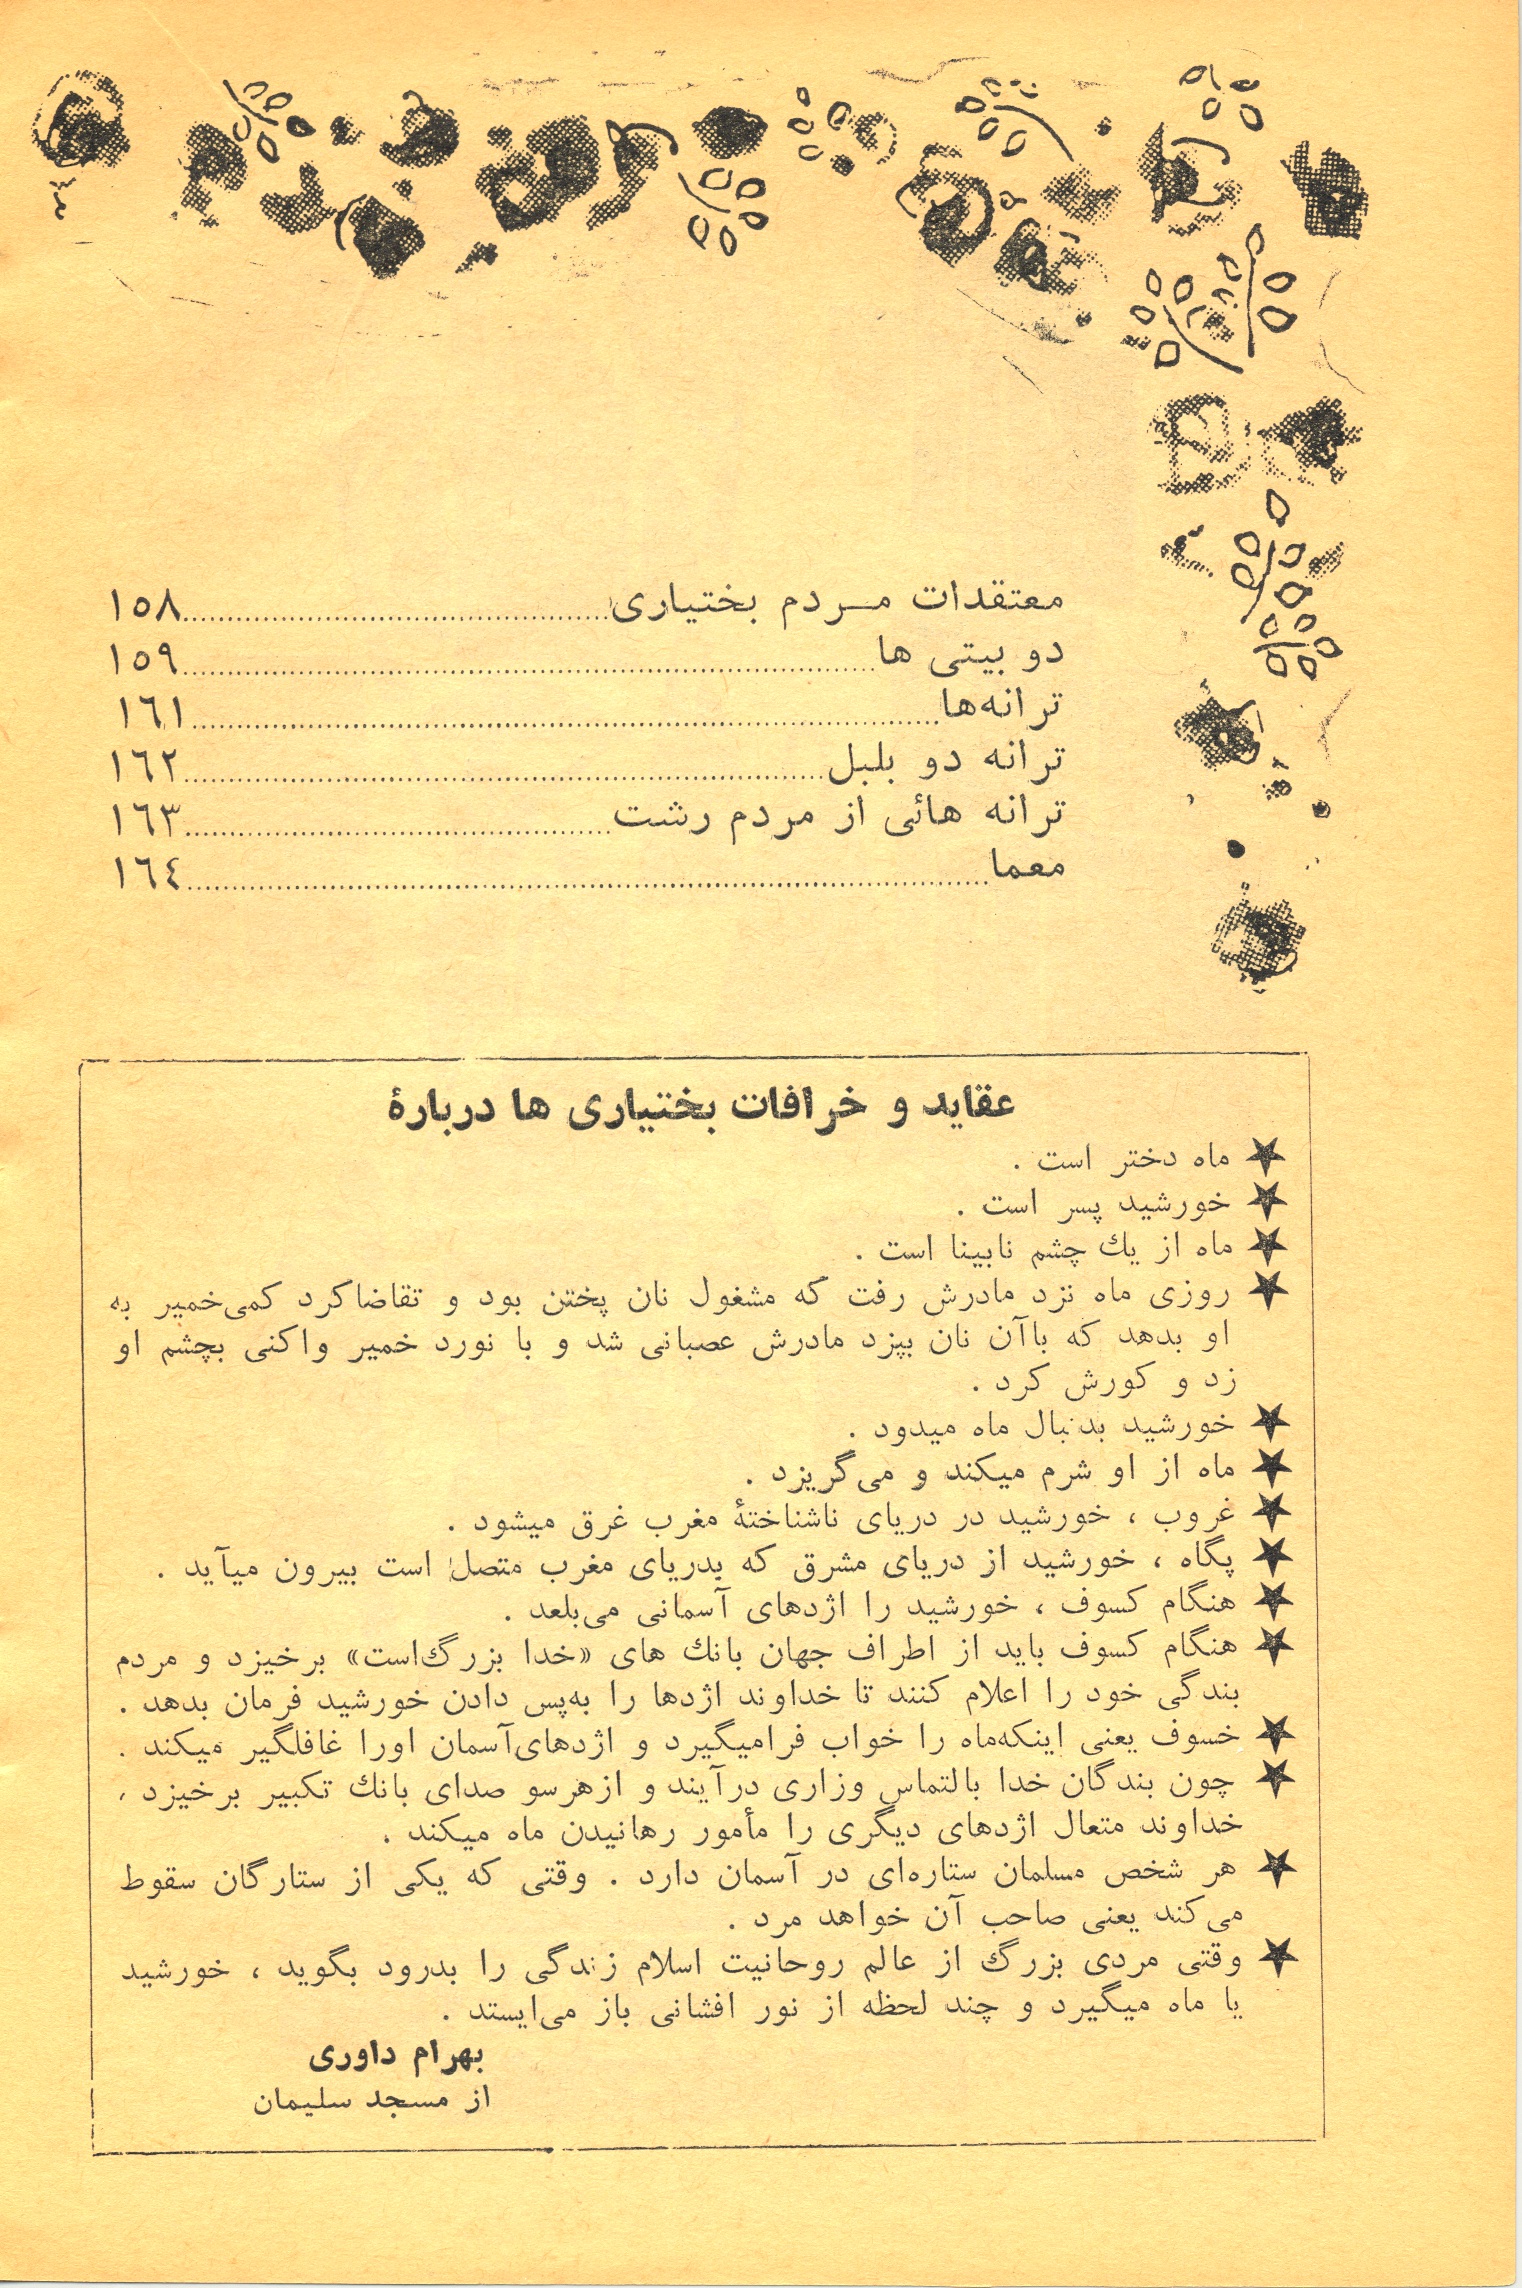 معتقدات مردم بختیاری ........ ۱۵۸
دو بیتی ها ........ ۱۵۹
ترانه‌ها ........ ۱٦۱
ترانه دو بلبل ........ ۱٦۲
ترانه هائی از مردم رشت ........ ۱٦۳
معما ........ ۱٦٤
عقاید و خرافات بختیاری ها دربارهٔ
★ ماه دختر است .
★ خورشید پسر است .
★ ماه از یك چشم نابینا است .
★ روزی ماه نزد مادرش رفت که مشغول نان پختن بود و تقاضاکرد کمی‌خمیر به
او بدهد که باآن نان بپزد مادرش عصبانی شد و با نورد خمیر واکنی بچشم او
زد و کورش کرد .
★ خورشید بدنبال ماه میدود .
★ ماه از او شرم میکند و می‌گریزد .
★ غروب ، خورشید در دریای ناشناختهٔ مغرب غرق میشود .
★ پگاه ، خورشید از دریای مشرق که بدریای مغرب متصل است بیرون میآید .
★ هنگام کسوف ، خورشید را اژدهای آسمانی می‌بلعد .
★ هنگام کسوف باید از اطراف جهان بانك های «خدا بزرگ‌است» برخیزد و مردم
بندگی خود را اعلام کنند تا خداوند اژدها را به‌پس دادن خورشید فرمان بدهد .
★ خسوف یعنی اینکه‌ماه را خواب فرامیگیرد و اژدهای‌آسمان اورا غافلگیر میکند .
★ چون بندگان خدا بالتماس وزاری درآیند و ازهرسو صدای بانك تکبیر برخیزد ،
خداوند متعال اژدهای دیگری را مأمور رهانیدن ماه میکند .
★ هر شخص مسلمان ستاره‌ای در آسمان دارد . وقتی که یکی از ستارگان سقوط
می‌کند یعنی صاحب آن خواهد مرد .
★ وقتی مردی بزرگ از عالم روحانیت اسلام زندگی را بدرود بگوید ، خورشید
یا ماه میگیرد و چند لحظه از نور افشانی باز می‌ایستد .
بهرام داوری
از مسجد سلیمان